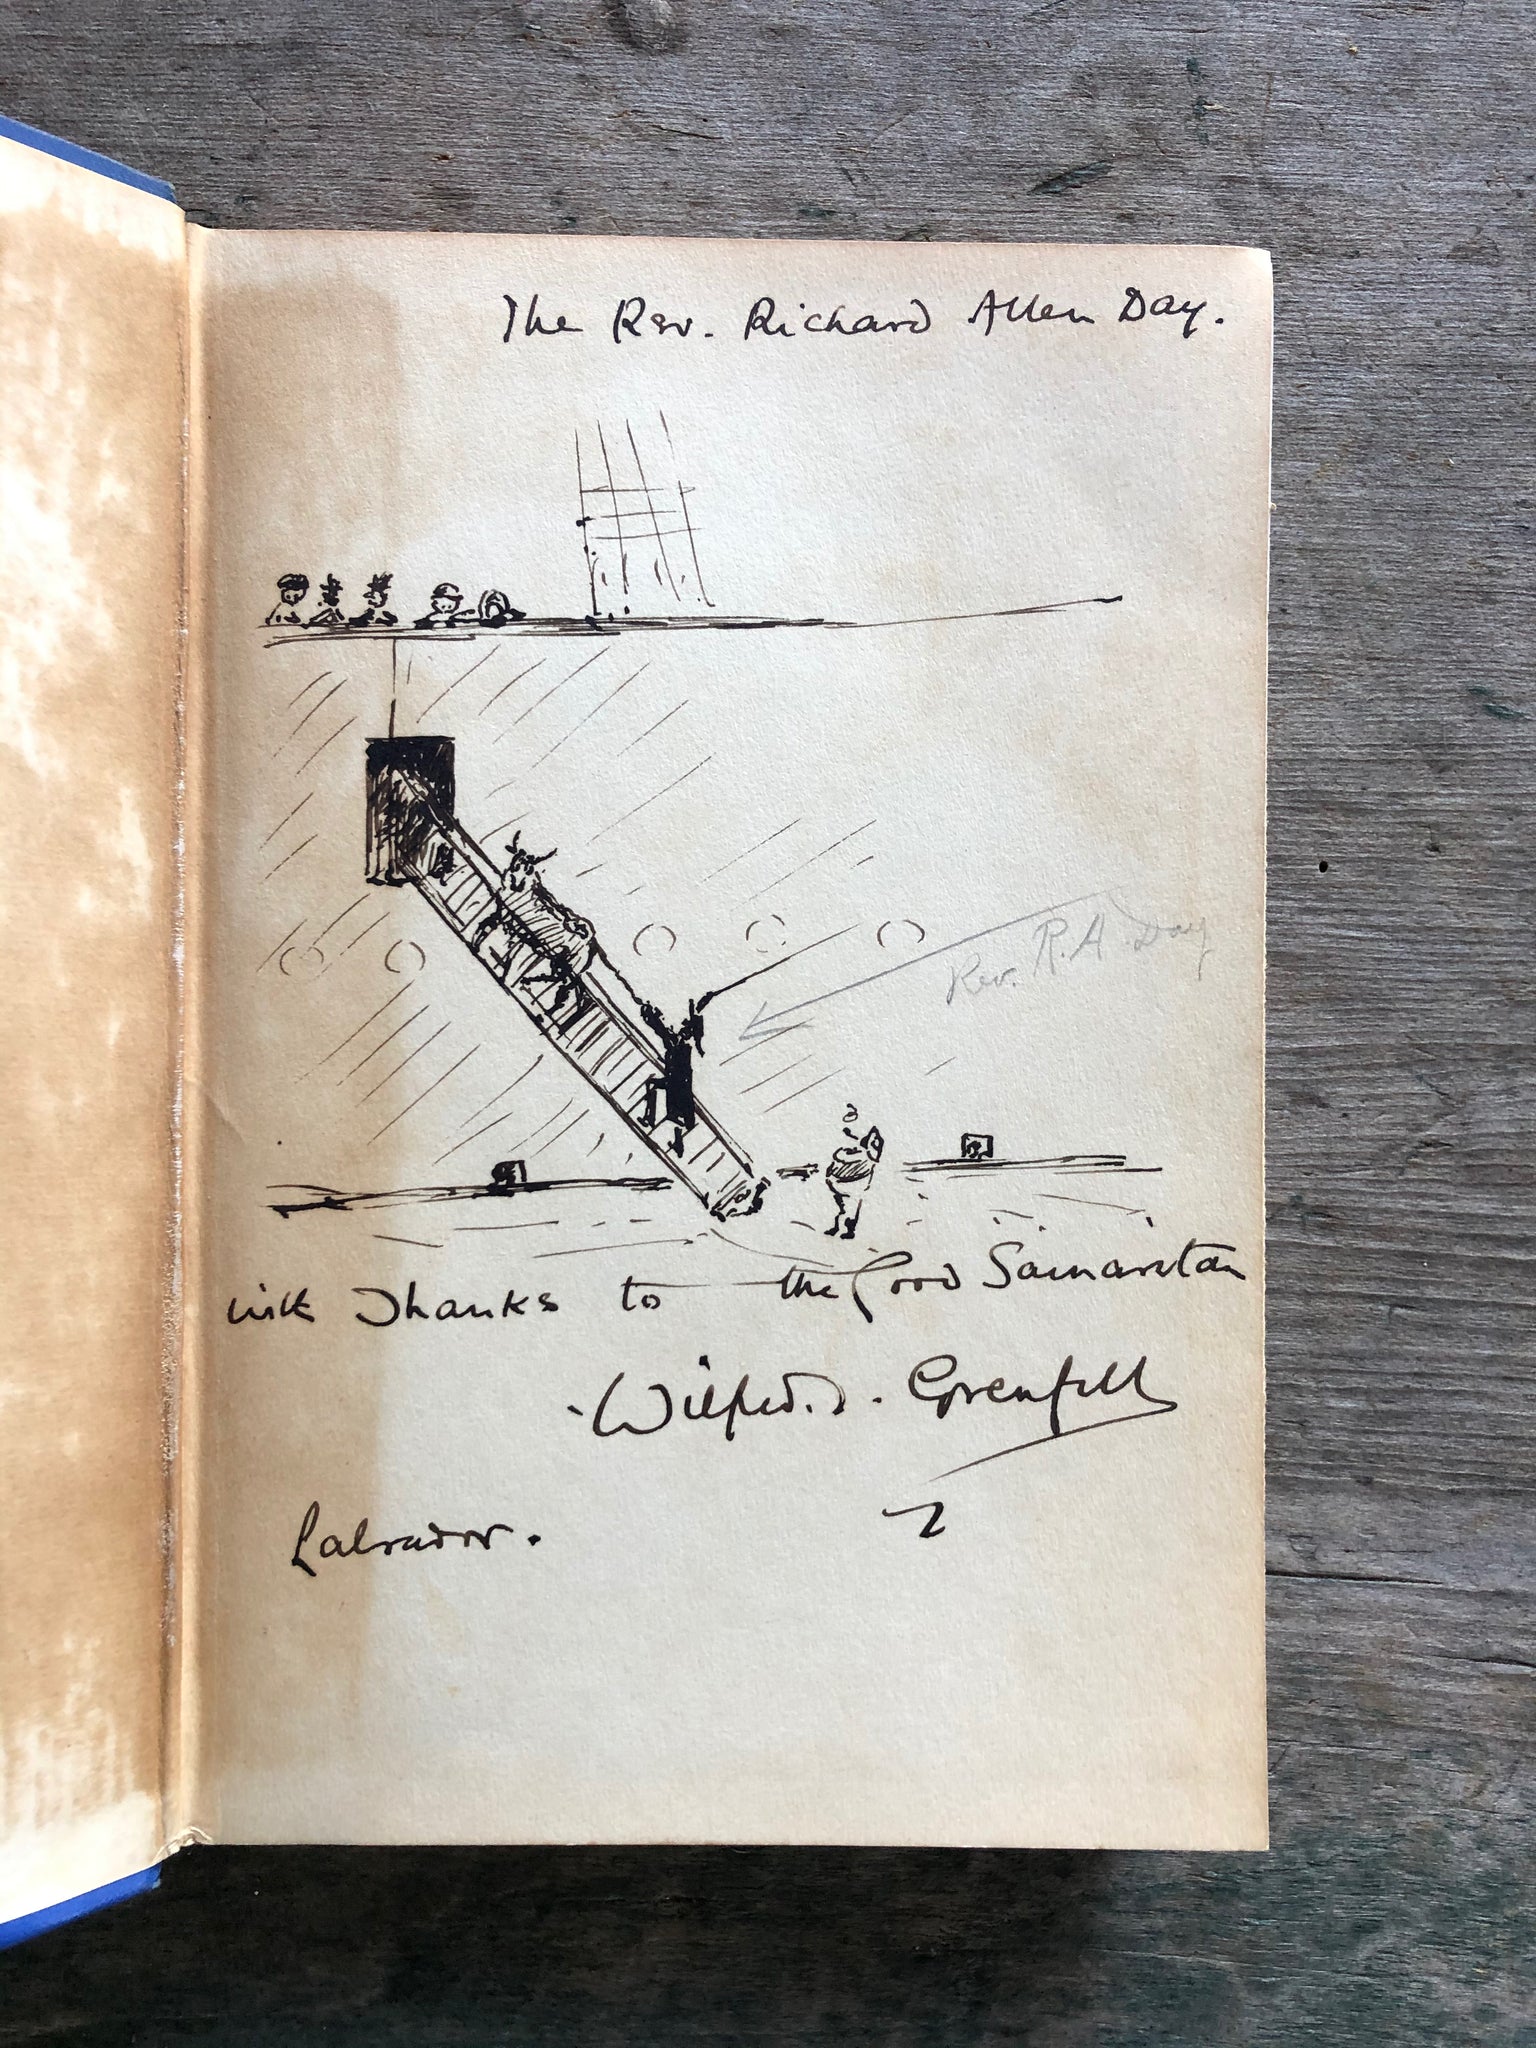 The Rev. Richard Allen Day.
Rev. R. A. Day
with Thanks to the Good Samaritan
Wilfred. T. Grenfell
Labrador.